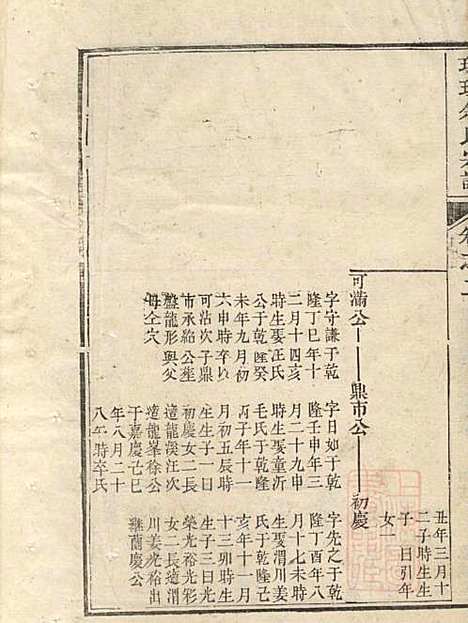 丑年三月十
二子時生生
子一曰引年
女一
可滿公
鼎市公
初慶
字守謙于乾
隆丁巳年十
二月十四亥
時生娶王氏
公于乾隆癸
未年九月初
六申時卒以
可沾次子鼎
市承紹公塟
盤龍形與父
母仝穴
字日如于乾
隆壬申年三
月二十九申
時生娶童沂
毛氏于乾隆
丙子年十一
月初五辰時
生生子一曰
初慶女二長
適龍溪汪次
適龍峯徐公
于嘉慶己巳
年八月二十
八午時卒氏
字先之于乾
隆丁酉年八
月十七未時
生娶渭川姜
氏于乾隆己
亥年十一月
十三卯時生
生子三曰光
榮光裕光彩
女二長適渭
川姜光裕出
繼蘭慶公